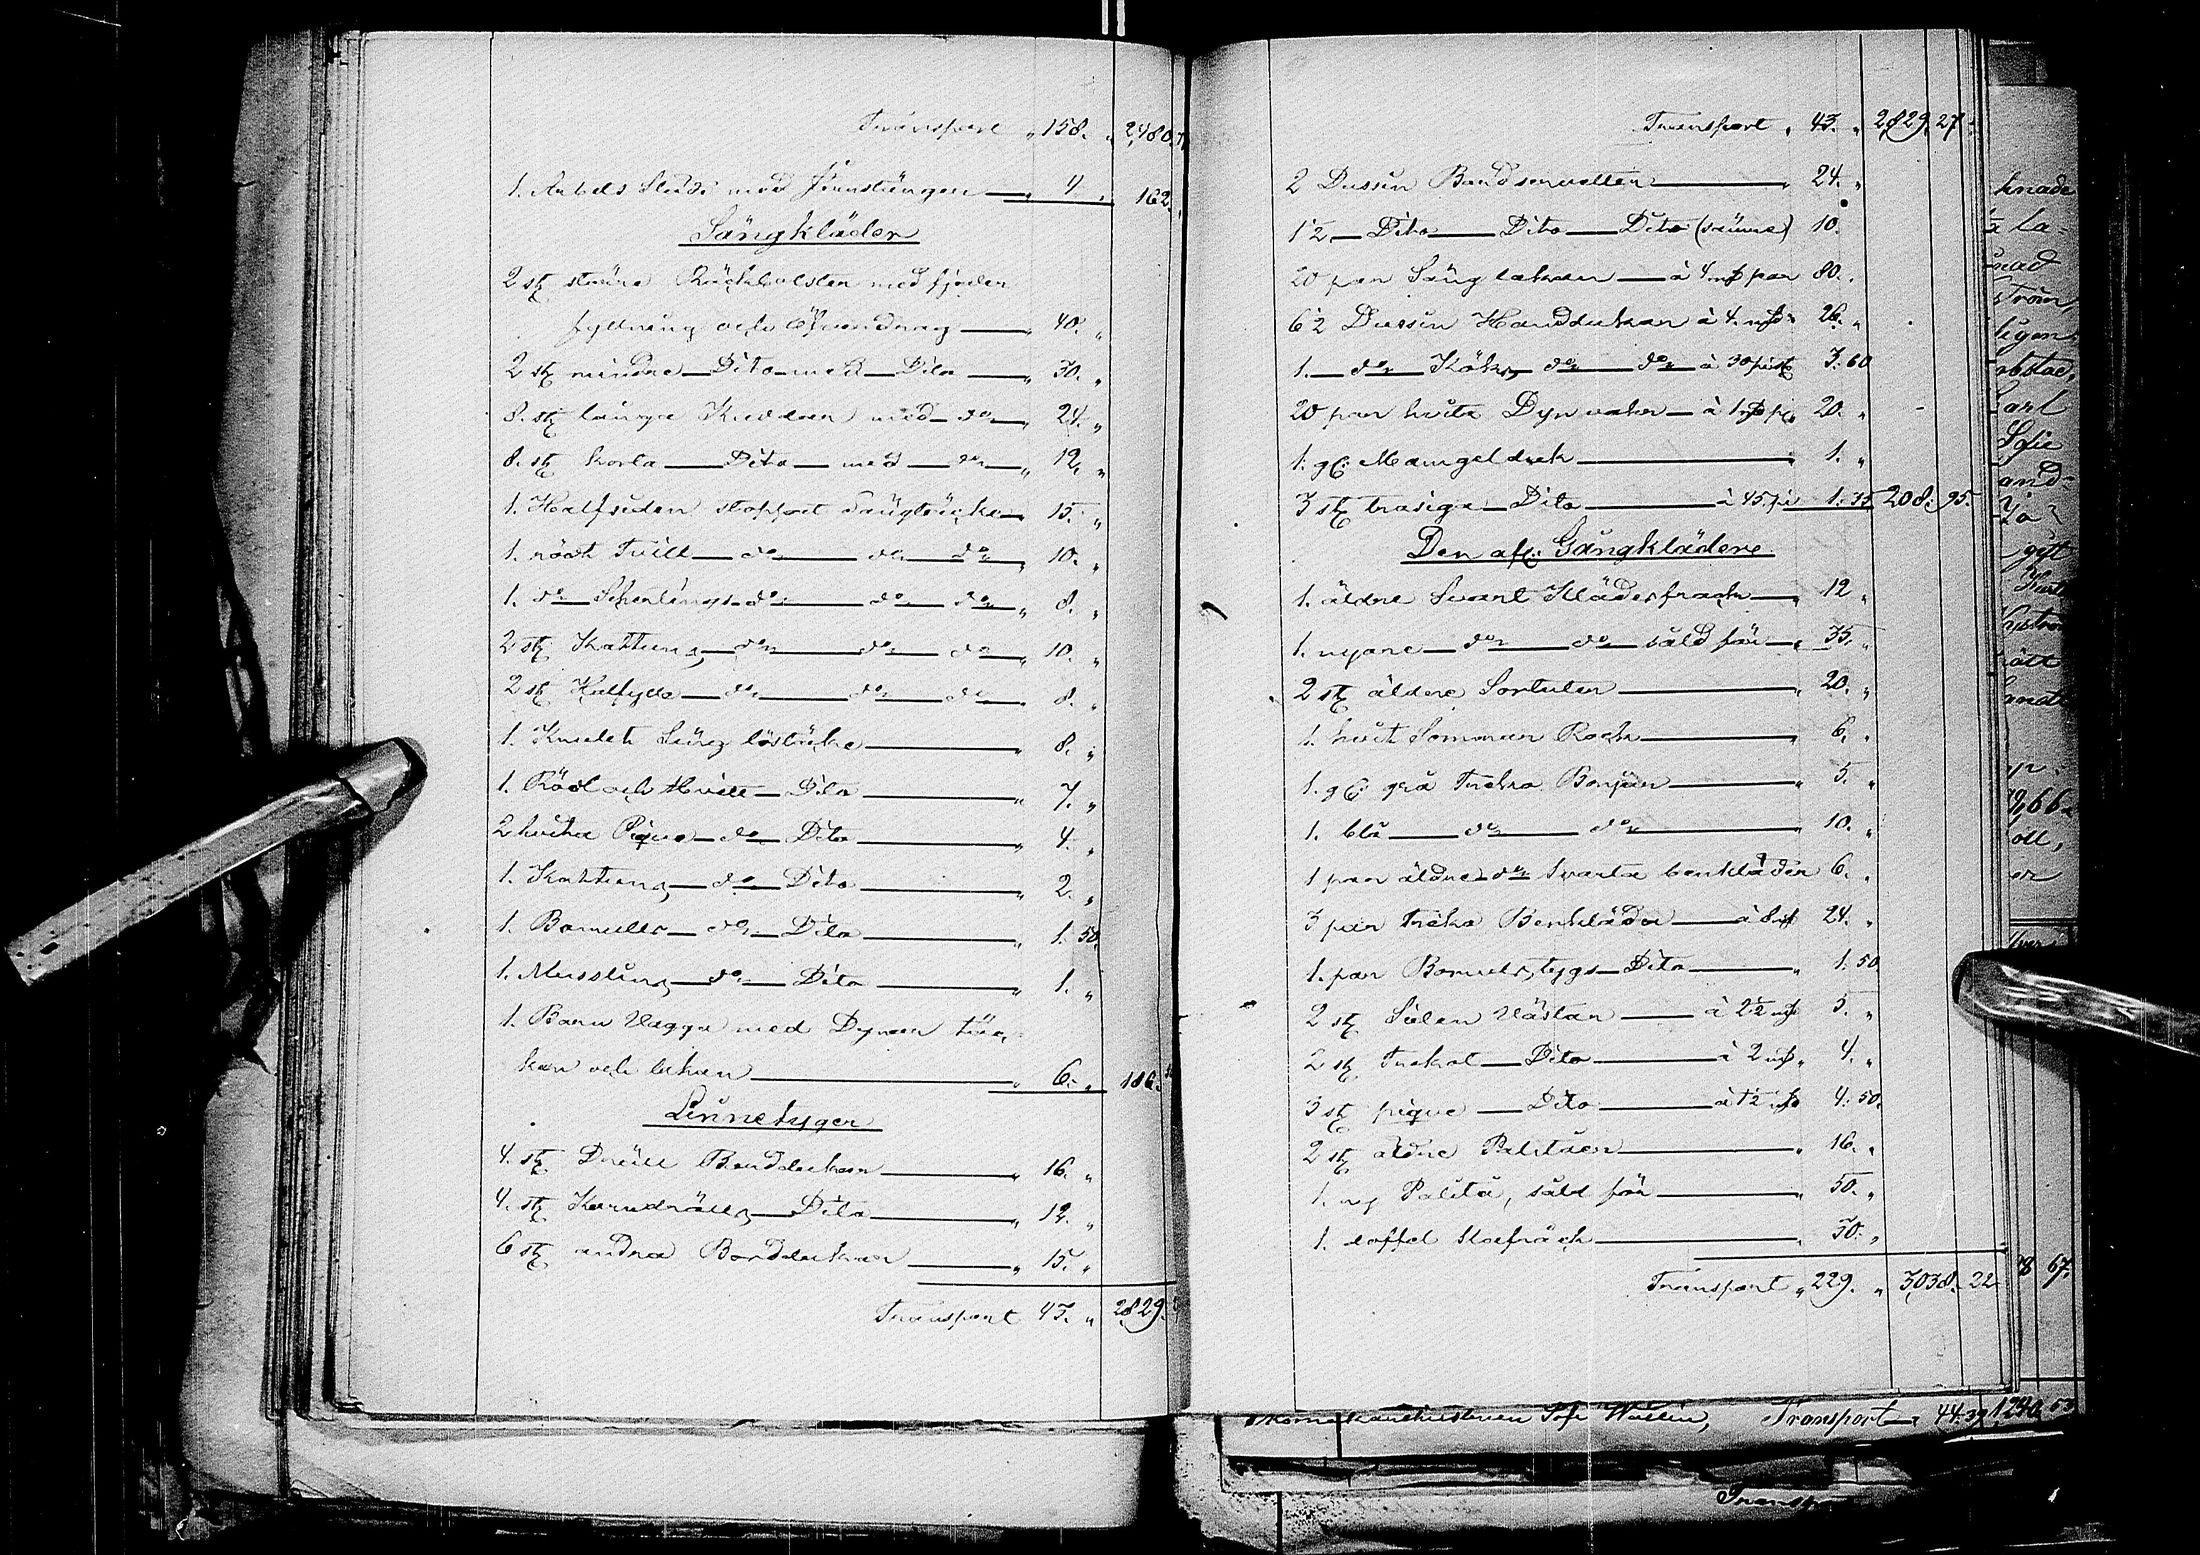 Transport " 158. " 2,480.
1. Arbets Släde med Jernstänger — " 4 " 162. "
Sängkläder
2 st större Ryckbolster med fjeder
fyllning och — " 40. "
2 st mindre — Dito — med — Dito — " 30. "
8. st långa Kuddar med — do — " 24. "
8. st korta — Dito — med — do — " 12. "
1. Halfsiden stoppat Sängtäcke — " 15. "
1. rödt Trill — do — do — do — " 10. "
1. do — do — do — do — " 8. "
2 st Kattuns — do — do — do — " 10. "
2 st Halfylle — do — do — do — " 8. "
1. Säng löstäcke — " 8. "
1. Röd och Hvitt — Dito — " 7. "
2 hvita Pique — do — Dito — " 4. "
1. Kattuns — do — Dito — " 2. "
1. Bomulls — do — Dito — " 1. 50.
1. Musslins — do — Dito — " 1. "
1. Barn Vagga med Dynor täc,
ken och lakan — " 6. " 186. 50
Linnetyger
4. st Dräll Borddukar — " 16. "
4. st Karndrälls — Dito — " 12. "
6 st andra Borddukar — " 15. "
Transport 43. " 2829.
Transport " 43. " 2,829. 27.
2 Dussin Bordservetter — " 24. "
1½ — Dito — Dito — Dito (sämre) 10.
20 par Sänglakan — à 4 par 80. "
6½ Dussin Handdukar à 4 26. "
1. — do — Köks — do — do — à 30 3. 60
20 par hvita Dynvahr — à 1 20. "
1. gl: Mangelduk — " 1. "
3 st trasiga — Dito — à 45 1. 35 208. 95.
Den afl: Gångkläder
1. äldre Svart Klädesfrack — " 12 "
1. nyare — do — do — såld för — " 35. "
2 st äldre Sortuter — " 20. "
1. hvit Sommar Rock — " 6. "
1. gl: grå Tricko Bonjur — " 5. "
1. blå — do — do — " 10. "
1 par äldre do Svarta benkläder 6. "
3 par Tricko Benkläder — à 8 24. "
1. par Bomulls,tygs — Dito — " 1. 50
2 st Siden Västar — à 2½ 5. "
2 st Trikot — Dito — à 2 " 4. "
3 st pique — Dito — à 1½ 4. 50.
2 st äldre Palitåer — " 16. "
1. ny Palitå, såld för — " 50. "
1. doffel Slasråck — " 30. "
Transport " 229. " 3,038. 22
Transport 44.39 1240.53